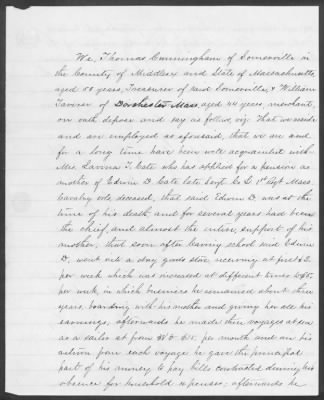 We, Thomas Cunningham of Somerville in
the County of Middlesex and State of Massachusetts,
aged 58 years, Treasurer of said Somerville, & William
Taviner of Dorchester Mass, aged 44 years, merchant,
on oath depose and say as follows, viz: That we reside
and are employed as aforesaid, that we are and
for a long time have been well acquainted with
Mrs. Lavina T. Cate who has applied for a pension as
mother of Edwin D. Cate late Sergt Co. D 1st Regt Mass.
Cavalry vols deceased, that said Edwin D. was at the
time of his death, and for several years had been
the chief, and almost the entire, support of his
mother; that soon after leaving school said Edwin
D. went into a dry goods store receiving at first $3.
per week which was increased at different times to $8.
per week, in which business he remained about three
years, boarding with his mother and giving her all his
earnings, afterwards he made three voyages at sea
as a sailor at from $8 to $15. per month and on his
return from each voyage he gave the principal
part of his money to pay bills contracted during his
absence for household expenses; afterwards he